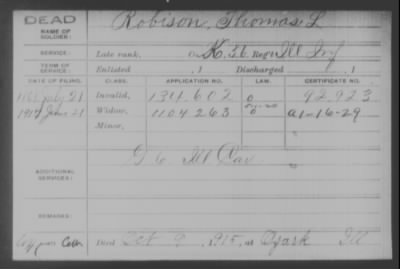 DEAD
NAME OF SOLDIER: Robison, Thomas L
SERVICE: Late rank, Co. K, 26 Reg't Ill Inf
TERM OF SERVICE: Enlisted , 1 Discharged , 1
DATE OF FILING. CLASS. APPLICATION NO. LAW. CERTIFICATE NO.
July 21 Invalid, 134.602 92.923
1917 June 21 Widow, 1104263 a1-16-29
Minor,
ADDITIONAL SERVICES: G 6 Ill Cav
REMARKS:
Died Oct 9, 1915, at Ozark Ill